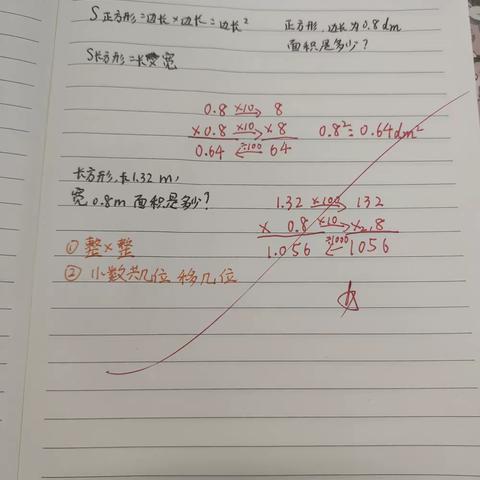 S正方形=边长×边长=边长²
正方形,边长为0.8dm
面积是多少?
S长方形=长×宽
0.8 ×10→ 8
×0.8 ×10→ ×8
0.64 ←÷100 64
0.8²=0.64dm²
长方形,长1.32 m,
宽0.8m 面积是多少?
1.32 ×100→ 132
× 0.8 ×10→ × 8
1.056 ←÷1000 1056
① 整×整
② 小数共几位 移几位